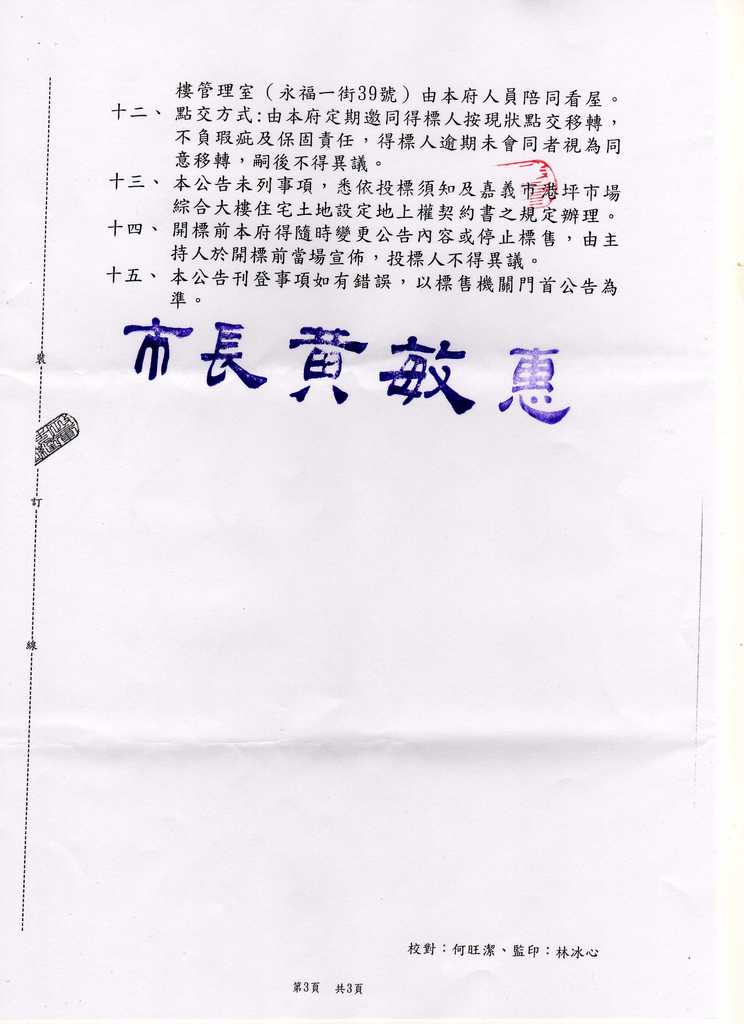 樓管理室（永福一街39號）由本府人員陪同看屋。
十二、點交方式:由本府定期邀同得標人按現狀點交移轉，
不負瑕疵及保固責任，得標人逾期未會同者視為同
意移轉，嗣後不得異議。
十三、本公告未列事項，悉依投標須知及嘉義市港坪市場
綜合大樓住宅土地設定地上權契約書之規定辦理。
十四、開標前本府得隨時變更公告內容或停止標售，由主
持人於開標前當場宣佈，投標人不得異議。
十五、本公告刊登事項如有錯誤，以標售機關門首公告為
準。
市長黃敏惠
裝
訂
線
校對：何旺潔、監印：林冰心
第3頁 共3頁